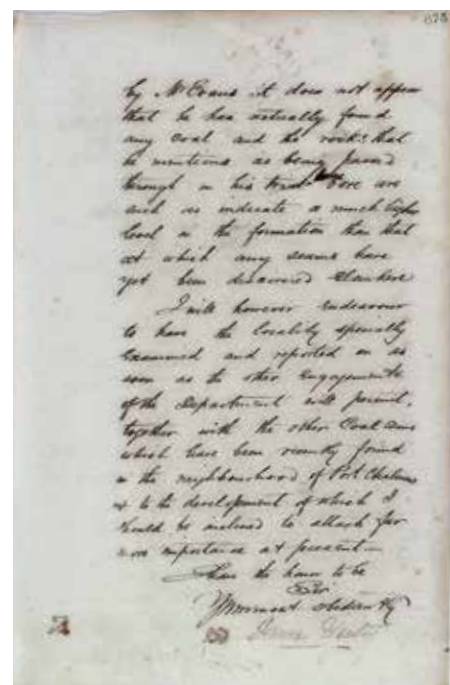 by Mr Evans it does not appear
that he has actually found
any coal and the rocks that
he mentions as being passed
through in his trial Bore are
such as indicate a much higher
level in the formation than that
at which any seams have
yet been discovered elsewhere
I will however endeavour
to have the locality specially
examined and reported on as
soon as the other engagements
of the Department will permit,
together with the other Coal seams
which have been recently found
in the neighbourhood of Port Chalmers
& to the development of which I
would be inclined to attach far
more importance at present—
I have the honor to be
Sir
Your most obedient
James Hector